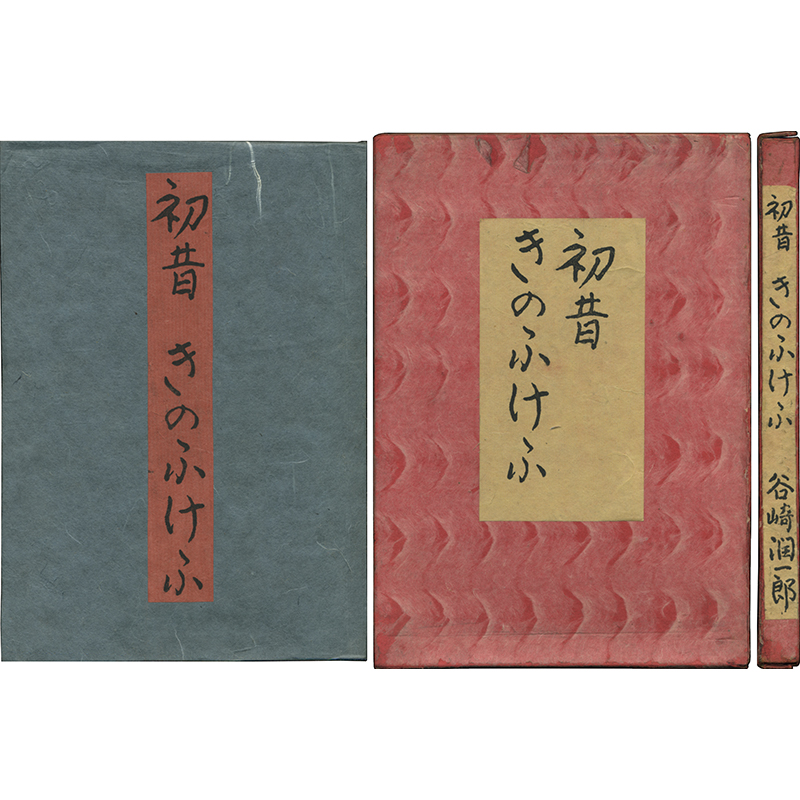 初昔　きのふけふ
初昔
きのふけふ
初昔　きのふけふ　谷崎潤一郎